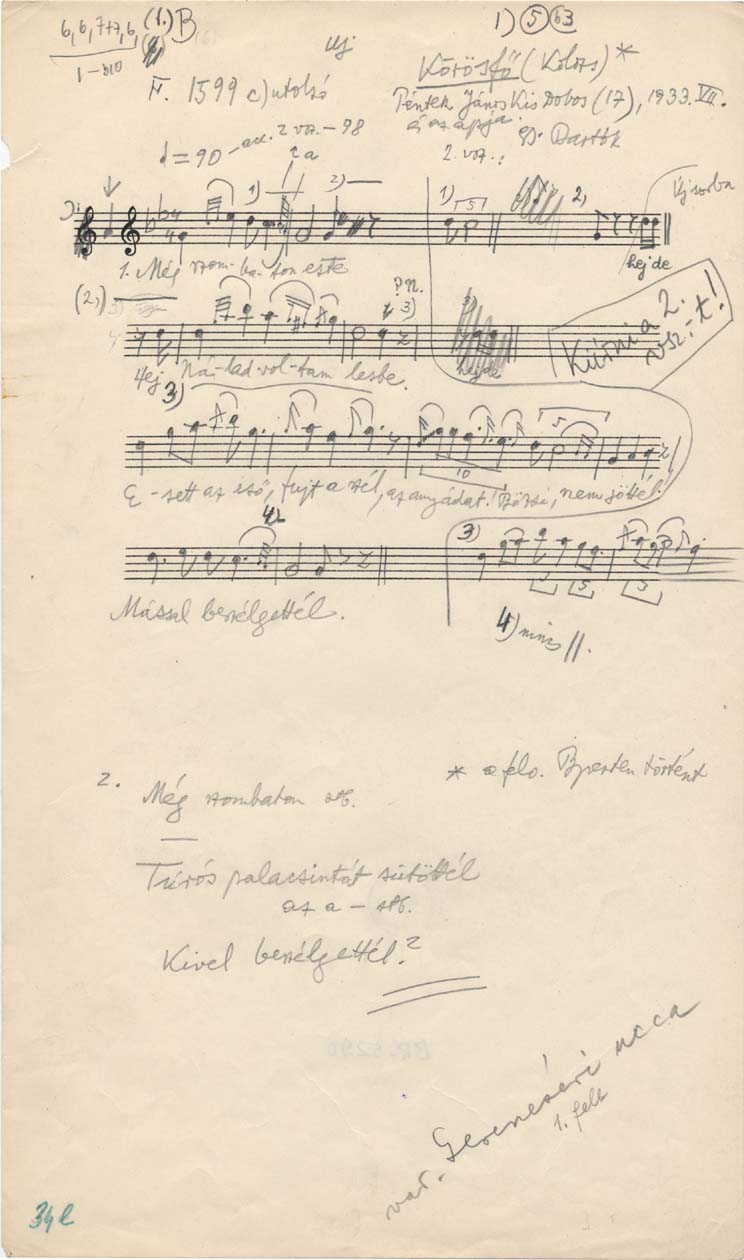 6, 6, 7+7, 6, (1.) B
1) 5 b3
1–
új
Körösfő (Kolozs) *
F. 1599 c) utolsó
Péntek János Kis Dobos (17), 1933. VII.
és az apja.
Bartók
= 90 – acc. 2 vsz. – 98
2. vsz.:
1) 2)
1) 5 2)
Új sorba
1. Még szom-ba-ton este
hej de
(2.)
3)
Hej Ná-lad vol-tam lesbe.
hej de
Kiírni a 2. vsz.-t!
3)
5
10
E-sett az eső, fujt a szél, az anyádat! Bözsi, nem jöttél!
4)
3)
5
3
Mással beszélgettél.
4) nincs
2. Még szombaton stb.
* a felv. Bpesten történt
—
Túrós palacsintát sütöttél
az a – stb.
Kivel beszélgettél?
var. Gerencséri ucca
1. felt
34 l